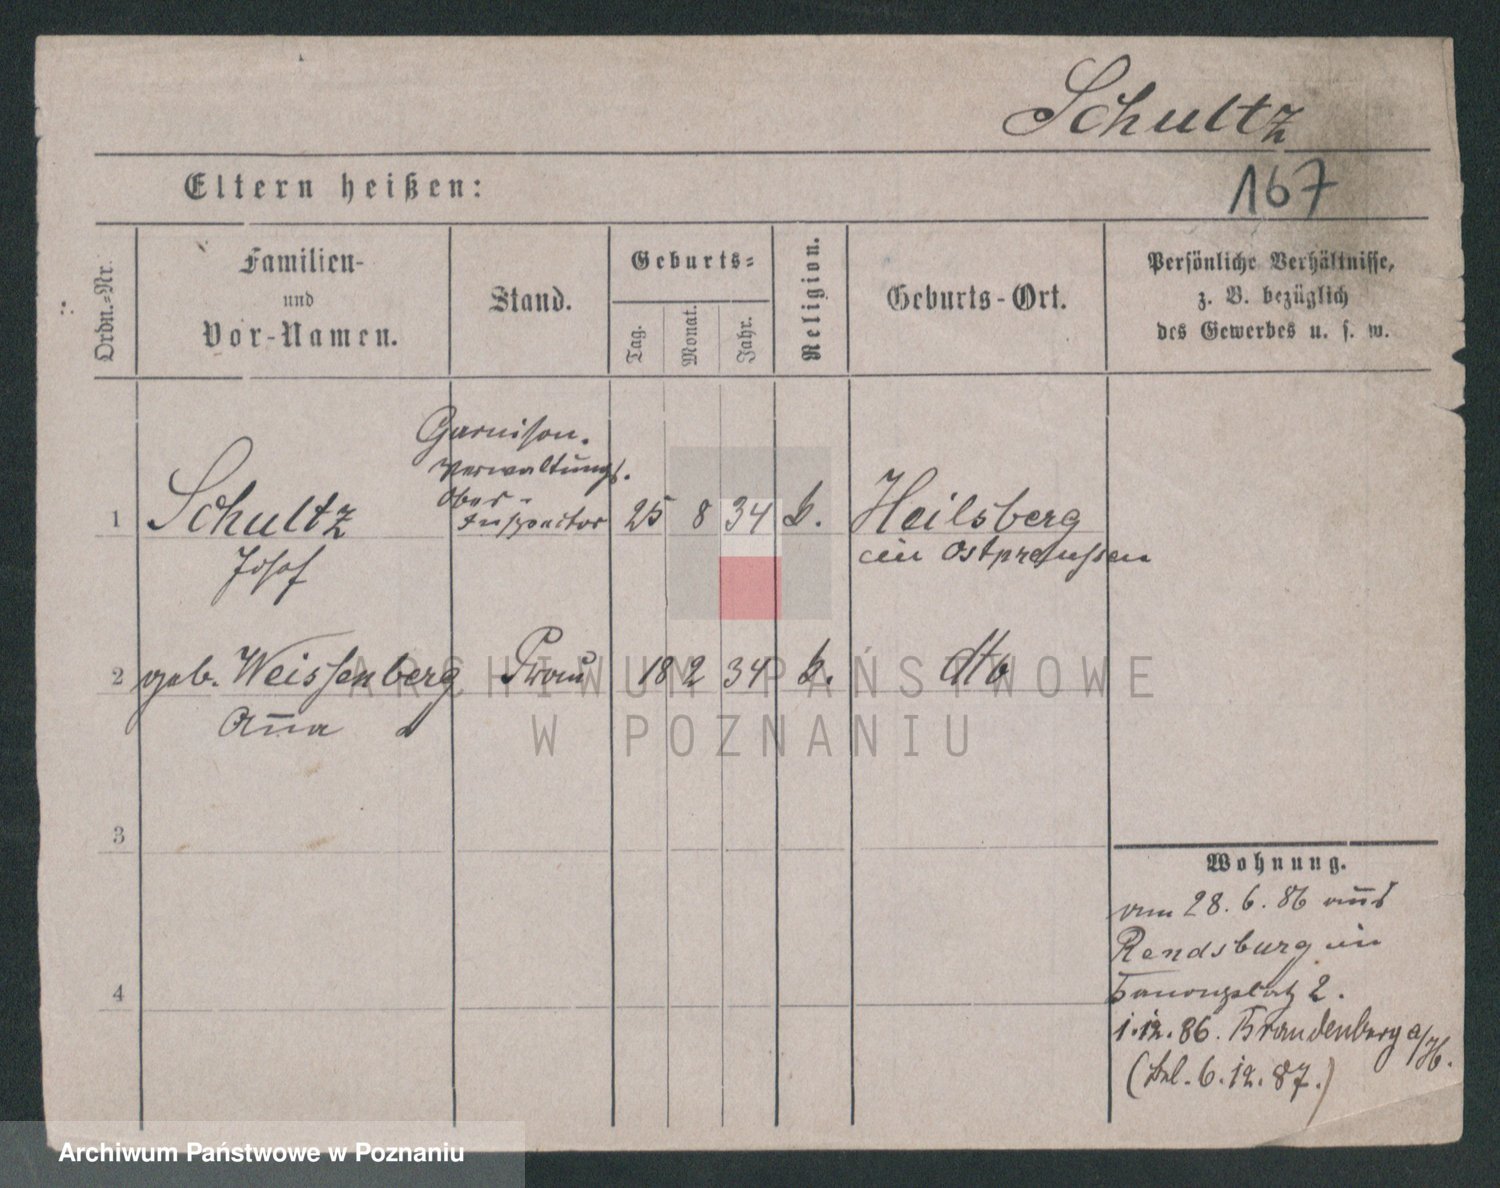 Schultz
167
Eltern heißen:
Ordn.-Nr.
Familien-
und
Vor-Namen.
Stand.
Geburts-
Tag.
Monat.
Jahr.
Religion.
Geburts-Ort.
Persönliche Verhältnisse,
z. B. bezüglich
des Gewerbes u. s. w.
Garnison-
Verwaltungs-
Ober-
1 Schultz Inspector 25 8 34 k. Heilsberg
Josef in Ostpreussen
2 geb. Weissenberg Frau 18 2 34 k. dto
Anna
3
4
Wohnung.
am 28. 6. 86 aus
Rendsburg in
Kanonenplatz 2.
1. 12. 86. Brandenburg a/H.
(bel. 6. 12. 87.)
ARCHIWUM PAŃSTWOWE
W POZNANIU
Archiwum Państwowe w Poznaniu